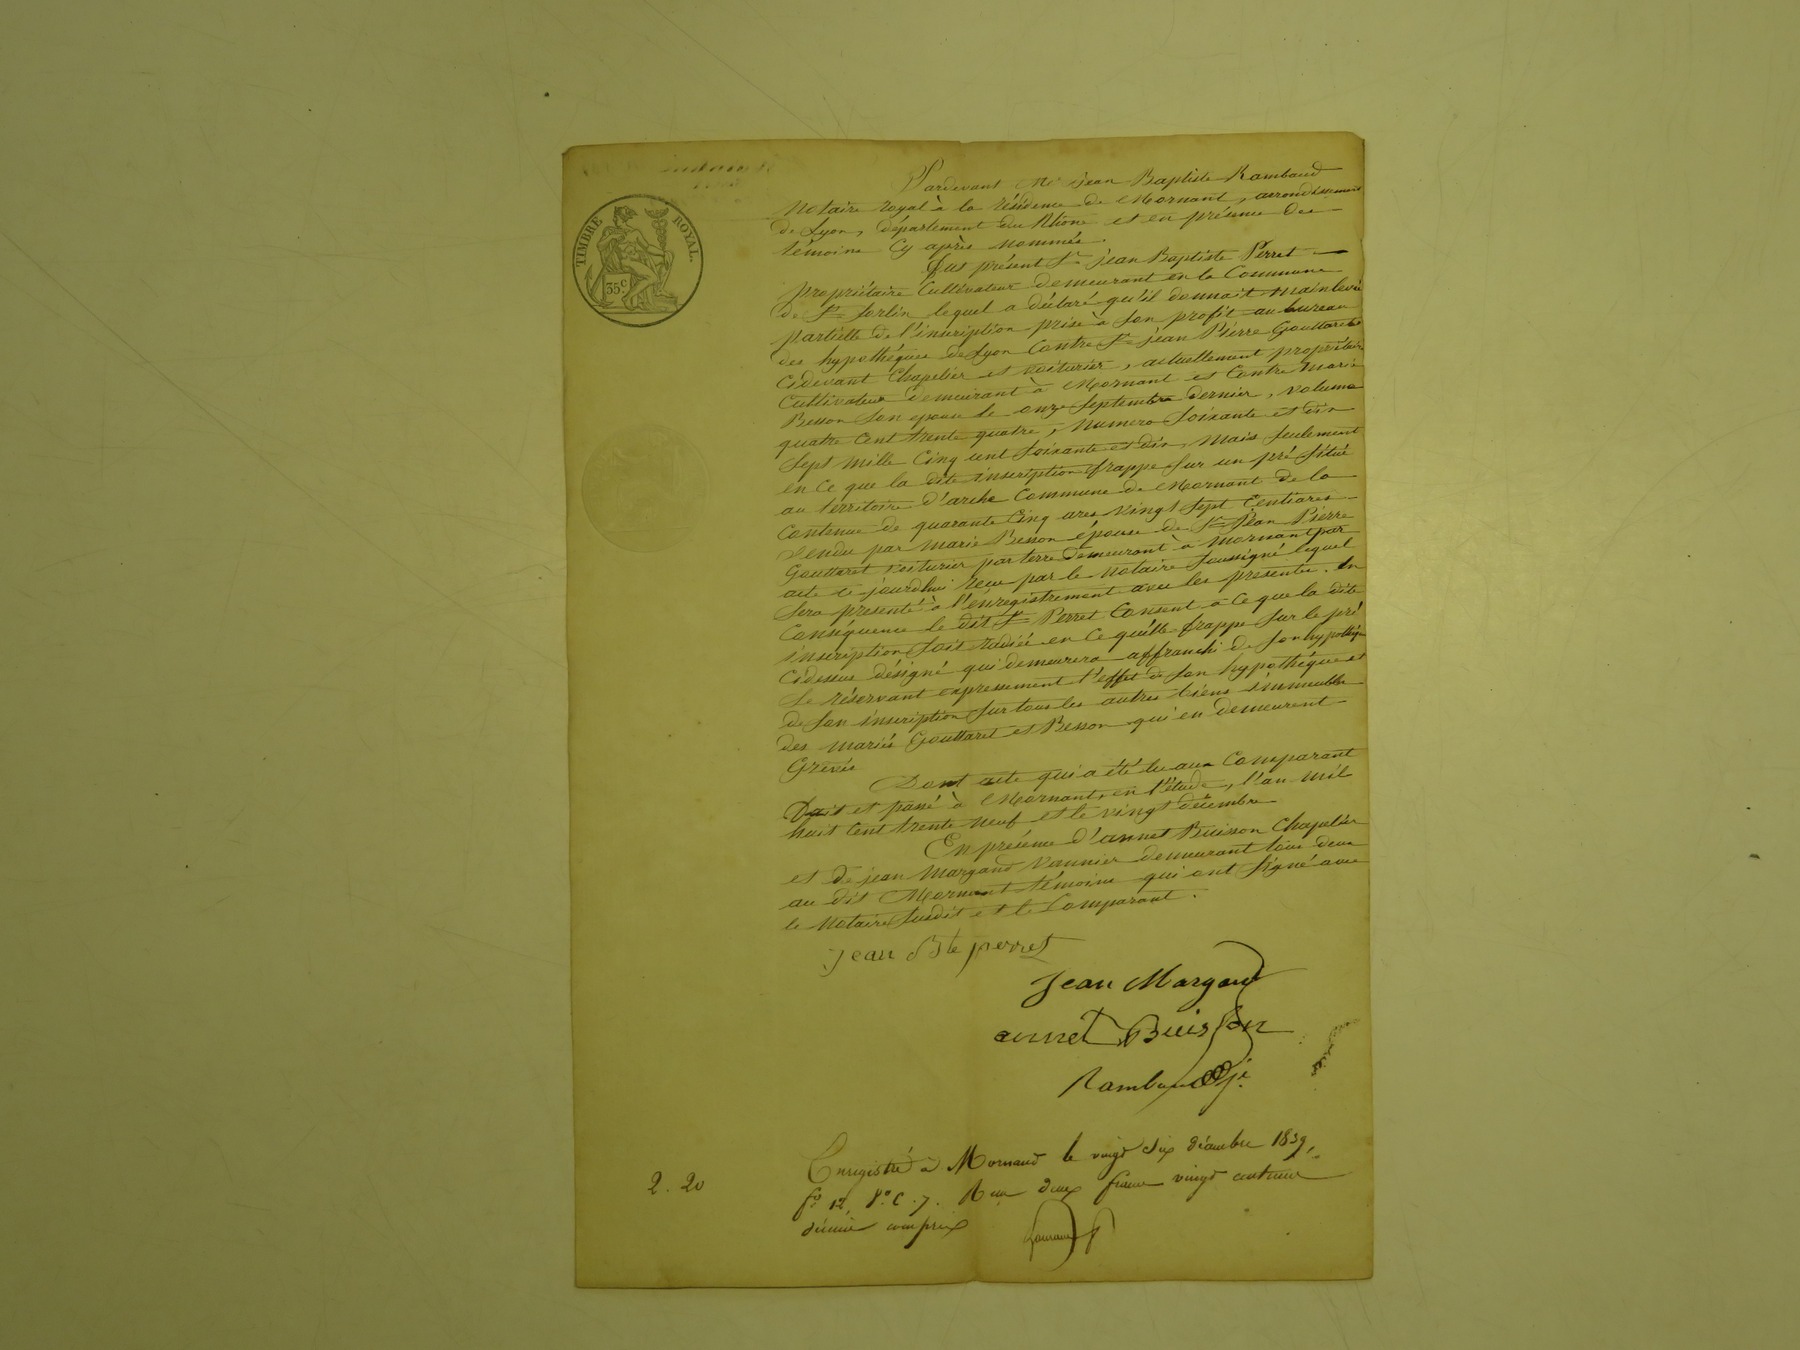 TIMBRE ROYAL.
35 c.
Pardevant Me jean Baptiste Rambaud
Notaire royal à la résidence de Mornant, arrondissement
de Lyon, département du Rhône et en présence des
témoins cy après nommés.
fut présent Sr jean Baptiste Perret
propriétaire Cultivateur demeurant en la Commune
de St Sorlin lequel a déclaré qu'il donnait mainlevée
partielle de l'inscription prise à son profit au bureau
des hypothéques de Lyon Contre Sr jean Pierre Gouttaret
Cidevant Chapelier et voiturier, actuellement propriétaire
Cultivateur demeurant à Mornant et Contre Marie
Besson Son épouse le onze Septembre dernier, volume
quatre Cent trente quatre, numero Soixante et dix
Sept mille Cinq cent Soixante et dix, Mais Seulement
en Ce que la dite inscription frappe Sur un pré Situé
au territoire d'arche Commune de Mornant de la
Contenue de quarante Cinq ares vingt Sept Centiares
vendu par Marie Besson épouse de Sr Jean Pierre
Gouttaret voiturier par terre demeurant à Mornant par
acte ce jourdhui reçu par le Notaire Soussigné lequel
Sera présenté à l'énregistrement avec les presentes. en
Conséquence le dit Sr Perret Consent à Ce que la dite
inscription Soit radiée en Ce qu'elle frappe Sur le pré
Cidessus désigné qui demeurera affranchi de Son hypothèque
Se réservant expressement l'effet de Son hypothéque et
de Son inscription Sur tous les autres biens immeubles
des mariés Gouttaret et Besson qui en demeurent
Grevés
Dont acte qui a été lu aux Comparant
Fait et passé à Mornant, en l'étude, l'an mil
huit Cent trente neuf et le vingt décembre
En présence d'annet Buisson Chapelier
et de jean Margand Vannier demeurant tous deux
au dit Mornant témoins qui ont Signé avec
le Notaire Susdit et le Comparant.
jean Bte perret
Jean Margand
annet Buisson
Rambaud
Enregistré à Mornand le vingt six décembre 1839,
fo 12, Vo C. 7. Reçu deux francs vingt centimes
décime compris
2. 20